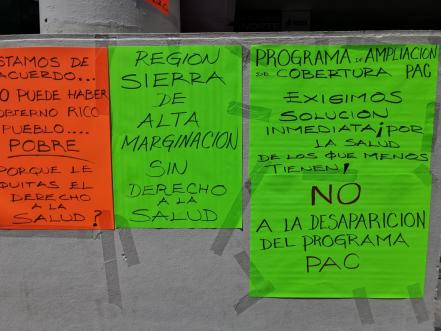 STAMOS DE
ACUERDO...
O PUEDE HABER
OBIERNO RICO
PUEBLO....
POBRE
PORQUE LE
QUITAS EL
DERECHO
A LA
SALUD?
REGION
SIERRA
DE
ALTA
MARGINACION
SIN
DERECHO
A LA
SALUD
PROGRAMA DE AMPLIACION
COBERTURA PAC
EXIGIMOS
SOLUCION
INMEDIATA ¡POR
LA SALUD
DE LOS QUE MENOS
TIENEN!
NO
A LA DESAPARICION
DEL PROGRAMA
PAC